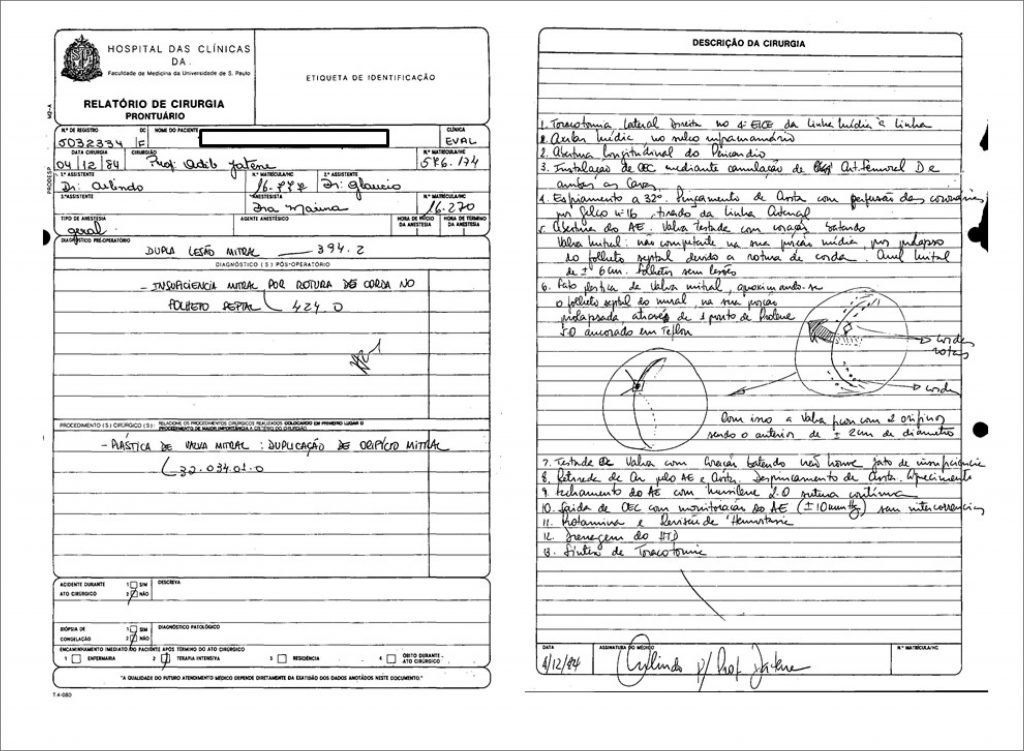 HOSPITAL DAS CLÍNICAS
DA
Faculdade de Medicina da Universidade de S. Paulo
RELATÓRIO DE CIRURGIA
PRONTUÁRIO
ETIQUETA DE IDENTIFICAÇÃO
N.º DE REGISTRO
DC
NOME DO PACIENTE
CLÍNICA
F
EVAL
DATA CIRURGIA
CIRURGIÃO
N.º MATRÍCULA/HC
04/12/84
Prof. Adib Jatene
576.174
1.º ASSISTENTE
N.º MATRÍCULA/HC
2.º ASSISTENTE
Dr. Arlindo
16.772
Dr. Glaucio
3.º ASSISTENTE
ANESTESISTA
N.º MATRÍCULA/HC
Dra
16.270
TIPO DE ANESTESIA
AGENTE ANESTÉSICO
HORA DE INÍCIO DA ANESTESIA
HORA DE TÉRMINO DA ANESTESIA
geral
DIAGNÓSTICO PRÉ-OPERATÓRIO
DUPLA LESÃO MITRAL — 394.2
DIAGNÓSTICO (S) PÓS-OPERATÓRIO
- INSUFICIENCIA MITRAL POR ROTURA DE CORDA NO
FOLHETO SEPTAL 424.0
PROCEDIMENTO (S) CIRÚRGICO (S):
- PLÁSTICA DE VALVA MITRAL : DUPLICAÇÃO DE ORIFÍCIO MITRAL
32.034.01.0
ACIDENTE DURANTE ATO CIRÚRGICO
1 SIM
2 NÃO
DESCREVA
BIÓPSIA DE CONGELAÇÃO
1 SIM
2 NÃO
DIAGNÓSTICO PATOLÓGICO
ENCAMINHAMENTO IMEDIATO DO PACIENTE APÓS TÉRMINO DO ATO CIRÚRGICO
1 ENFERMARIA
2 TERAPIA INTENSIVA
3 RESIDÊNCIA
4 ÓBITO DURANTE ATO CIRÚRGICO
"A QUALIDADE DO FUTURO ATENDIMENTO MÉDICO DEPENDE DIRETAMENTE DA EXATIDÃO DOS DADOS ANOTADOS NESTE DOCUMENTO."
T-4-080
PRODESP
DESCRIÇÃO DA CIRURGIA
1. Toracotomia lateral direita no 4º EICE da linha média à linha
axilar média no sulco inframamário
2. Abertura longitudinal do Pericardio
3. Instalação de CEC mediante canulação de Art. femoral D e
ambas as Cavas
4. Esfriamento a 32º. Pinçamento de Aorta com perfusão das coronárias
por Gelco nº 16, tirado da linha Arterial
5. Abertura do AE. Valva Testada com coração batendo
Valva Mitral: não competente na sua porção média, por prolapso
do folheto septal devido a rotura de corda. Anel Mitral
de ± 6 cm. Folhetos sem lesões
6. Feito plástica de Valva mitral, aproximando-se
o folheto septal do mural, na sua porção
prolapsada, através de 1 ponto de Prolene
5.0 ancorado em Teflon
cordas
rotas
corda
Com isso a Valva ficou com 2 orifícios
sendo o anterior de ± 2cm de diâmetro
7. Testada Valva com Coração batendo não houve jato de insuficiencia
8. Retirada de Ar pelo AE e Aorta. Despinçamento de Aorta. Aquecimento
9. Fechamento do AE com 2.0 sutura contínua
10. Saída de CEC com monitoração do AE (±10mmHg) sem intercorrencias
11. Protamina e Revisão de Hemostasia
12. Drenagem do HTD
13. Síntese de Toracotomia
DATA
ASSINATURA DO MÉDICO
N.º MATRÍCULA/HC
4/12/84
Arlindo p/ Prof. Jatene